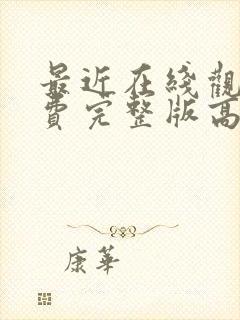 最近在綫觀
費完整版高
康華